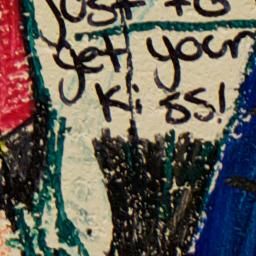 just to
get your
kiss!